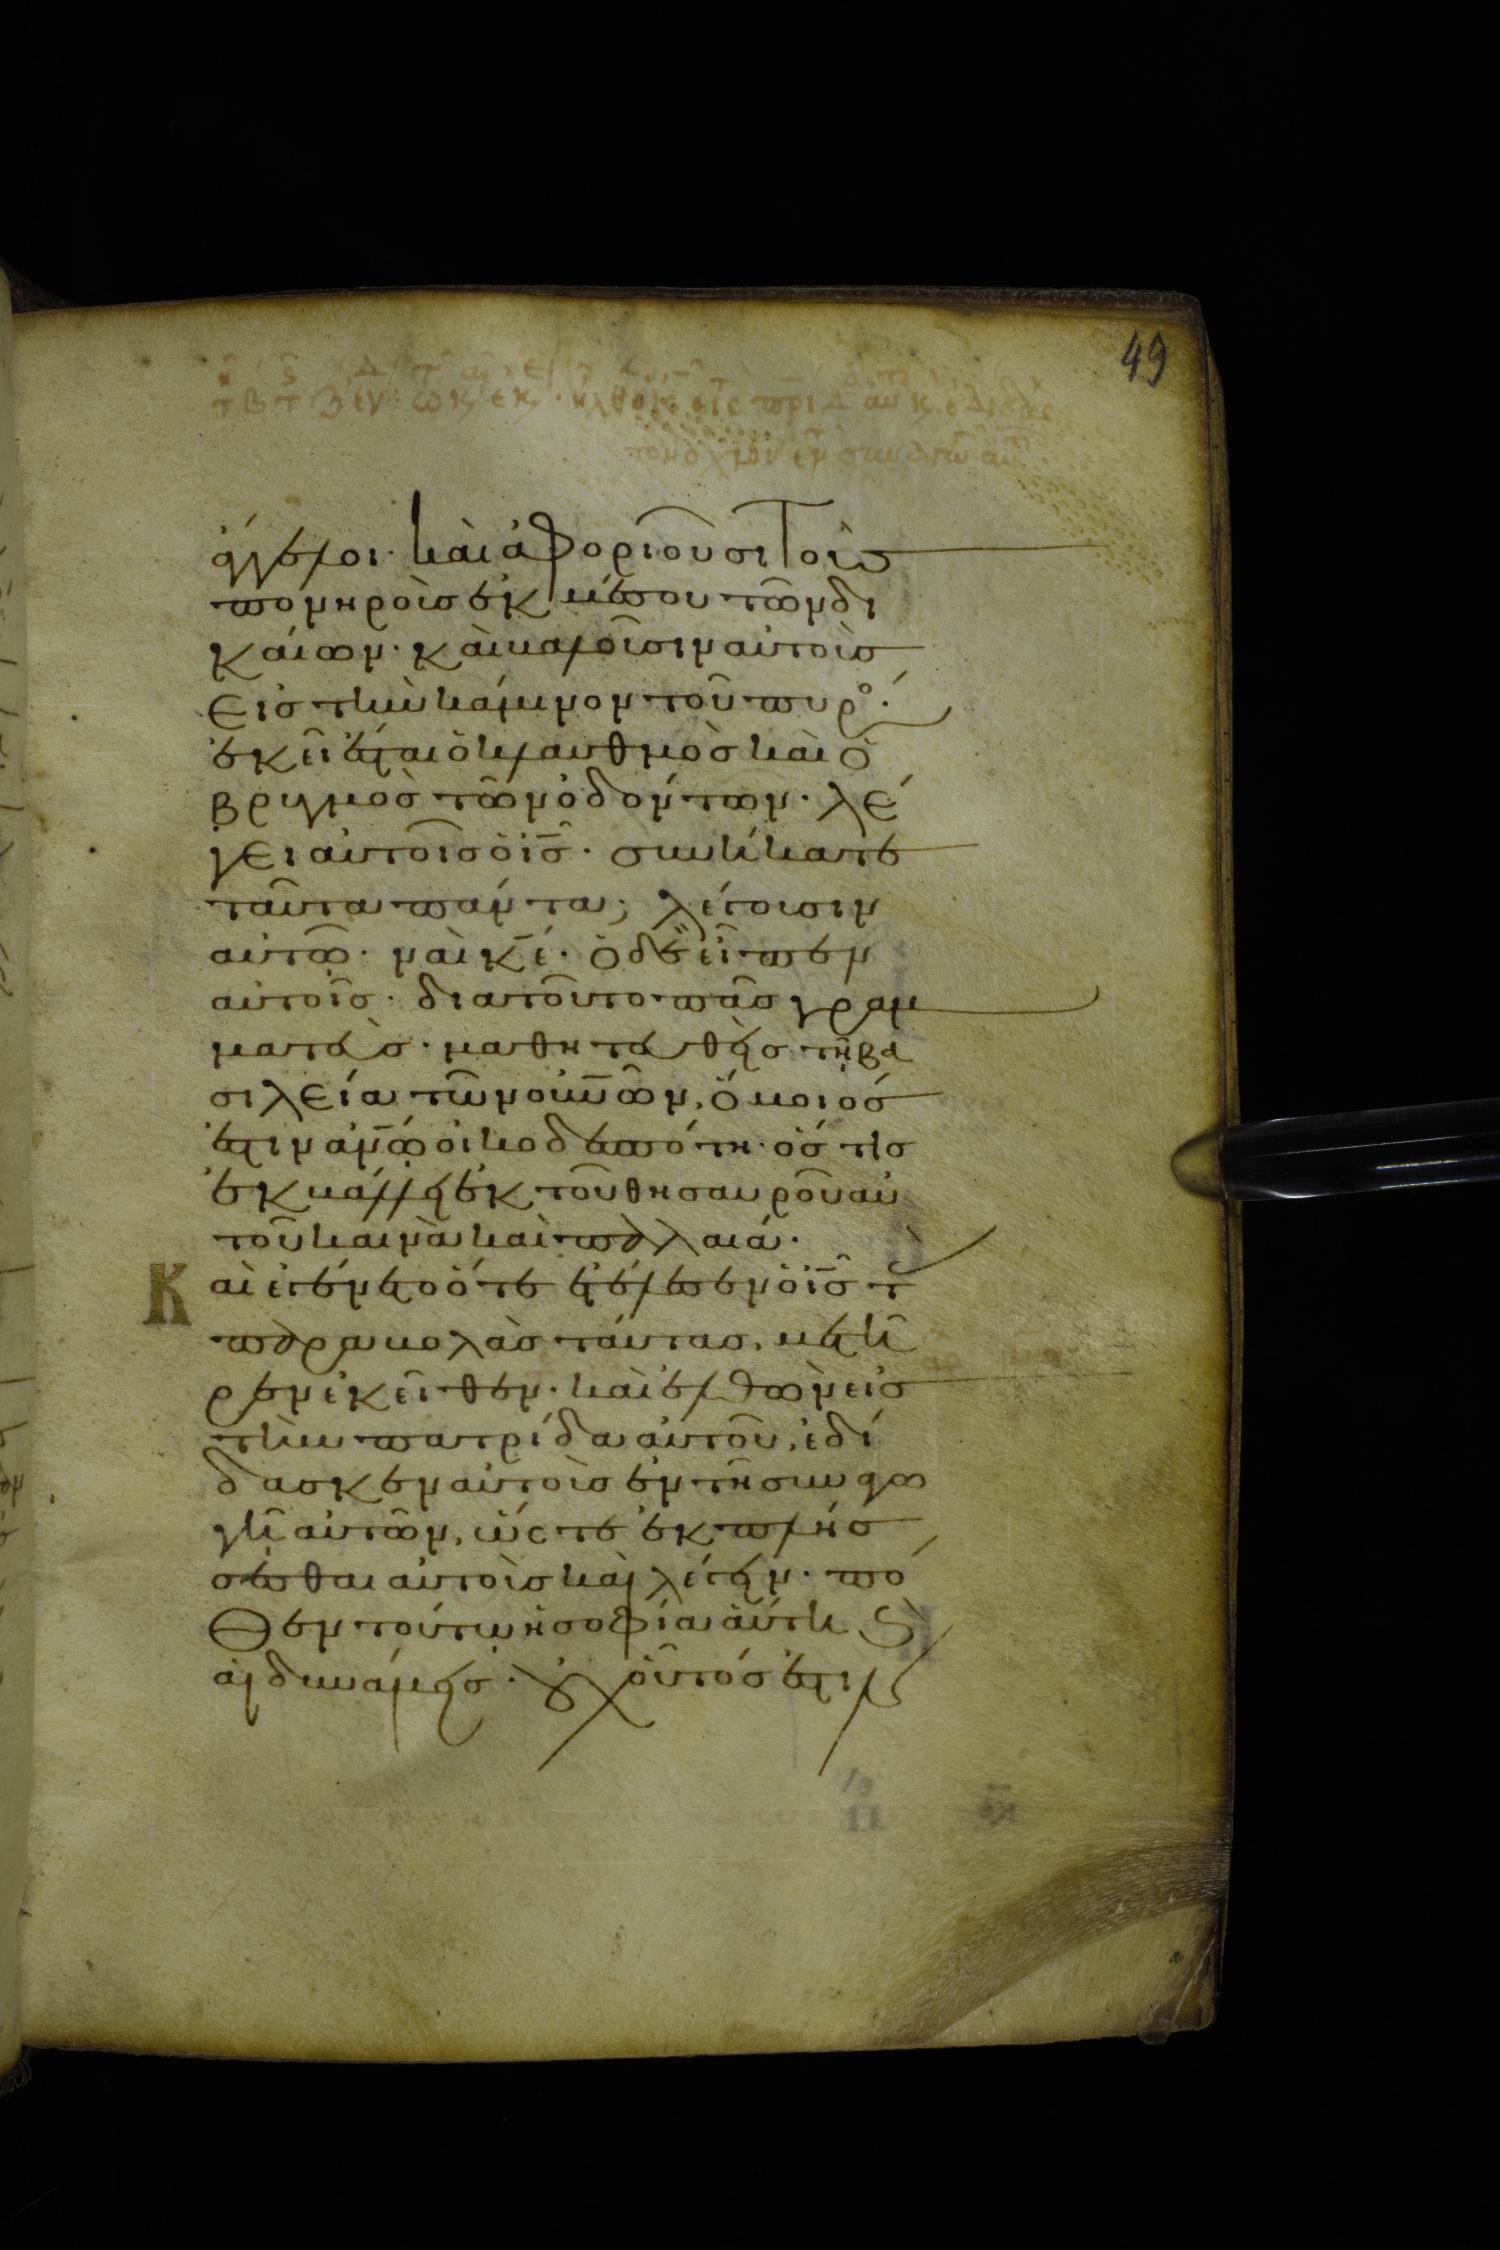 49
ἄγγελοι· καὶ ἀφοριοῦσι τοὺς
πονηροὺς ἐκ μέσου τῶν δι
καίων· καὶ βαλοῦσιν αὐτοὺς
εἰς τὴν κάμινον τοῦ πυρό·
ἐκεῖ ἔσται ὁ κλαυθμὸς καὶ ὁ
βρυγμὸς τῶν ὀδόντων· λέ
γει αὐτοῖς ὁ ι̅ς̅· συνήκατε
ταῦτα πάντα; λέγουσιν
αὐτῶ· ναὶ κ̅ε̅· ὁ δὲ εἶπεν
αὐτοῖς· διατοῦτο πᾶς γραμ
ματεὺς· μαθητευθεὶς τῆ βα
σιλεία τῶν ο̅υ̅ν̅ῶν, ὅμοιός
ἐστιν α̅ν̅ω̅ οἰκοδεσπότη· ὅς τις
ἐκβάλλει ἐκ τοῦ θησαυροῦ αὐ
τοῦ καινὰ καὶ παλαιά·
Καὶ ἐγένετο ὅτε ἐτέλεσεν ὁ ι̅ς̅ τ
παραβολὰς ταύτας, μετῆ
ρεν ἐκεῖθεν· καὶ ἐλθὼν εἰς
τὴν πατρίδα αὐτοῦ, ἐδί
δασκεν αὐτοὺς ἐν τῆ συναγω
γῆ αὐτῶν, ὥστε ἐκπλήσ
σεσθαι αὐτοὺς καὶ λέγειν· πό
θεν τούτω ἡ σοφία αὕτη ϗ
αἱ δυνάμεις· οὐχ οὗτός ἐστιν